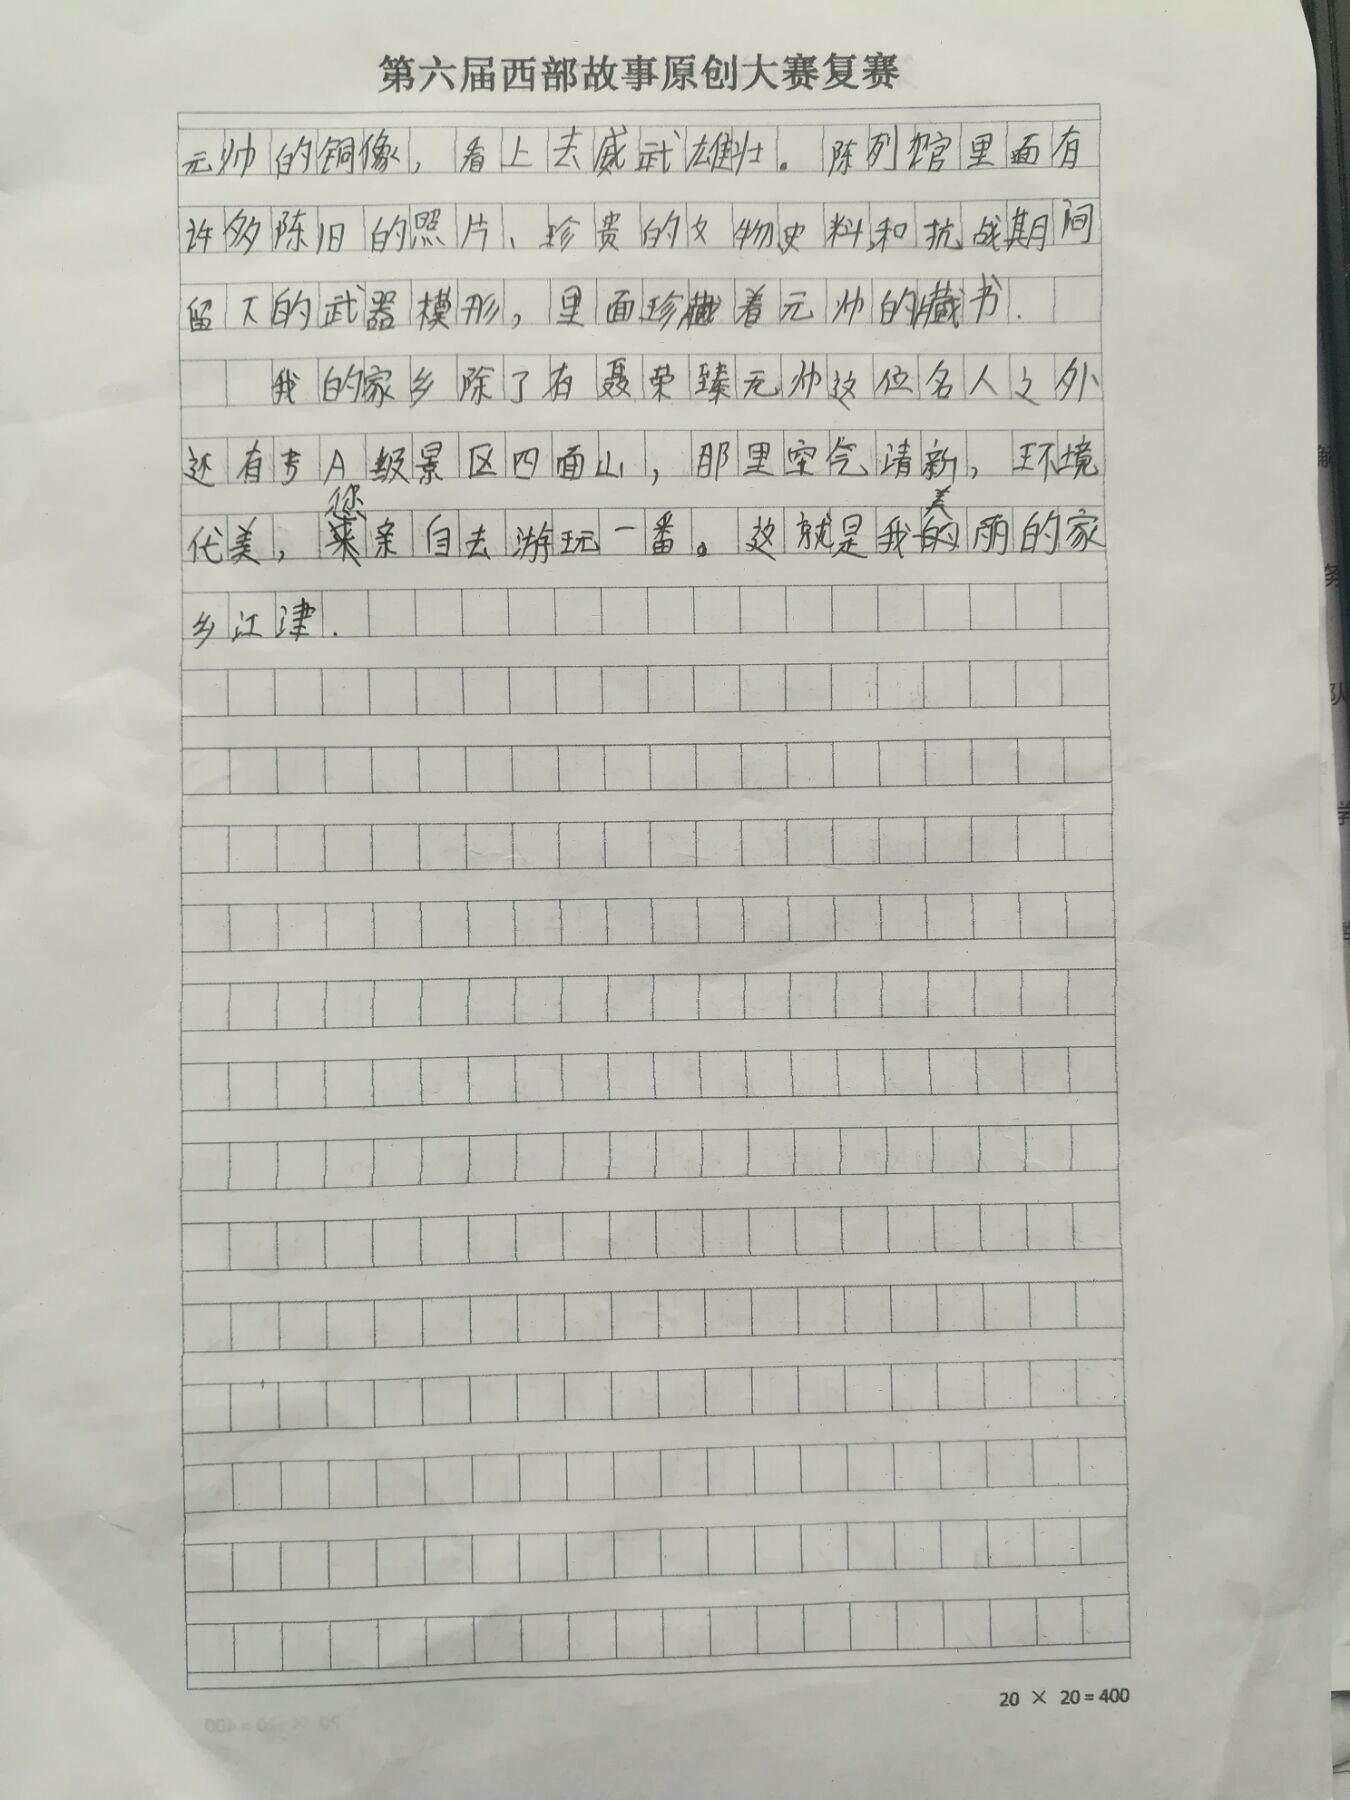 第六届西部故事原创大赛复赛
元帅的铜像，看上去威武雄壮。陈列馆里面有
许多陈旧的照片、珍贵的文物史料和抗战期间
留下的武器模形，里面珍藏着元帅的藏书.
我的家乡除了有聂荣臻元帅这位名人之外
还有5A级景区四面山，那里空气清新，环境
优美，您亲自去游玩一番。这就是我美丽的家
乡江津.
20 × 20=400